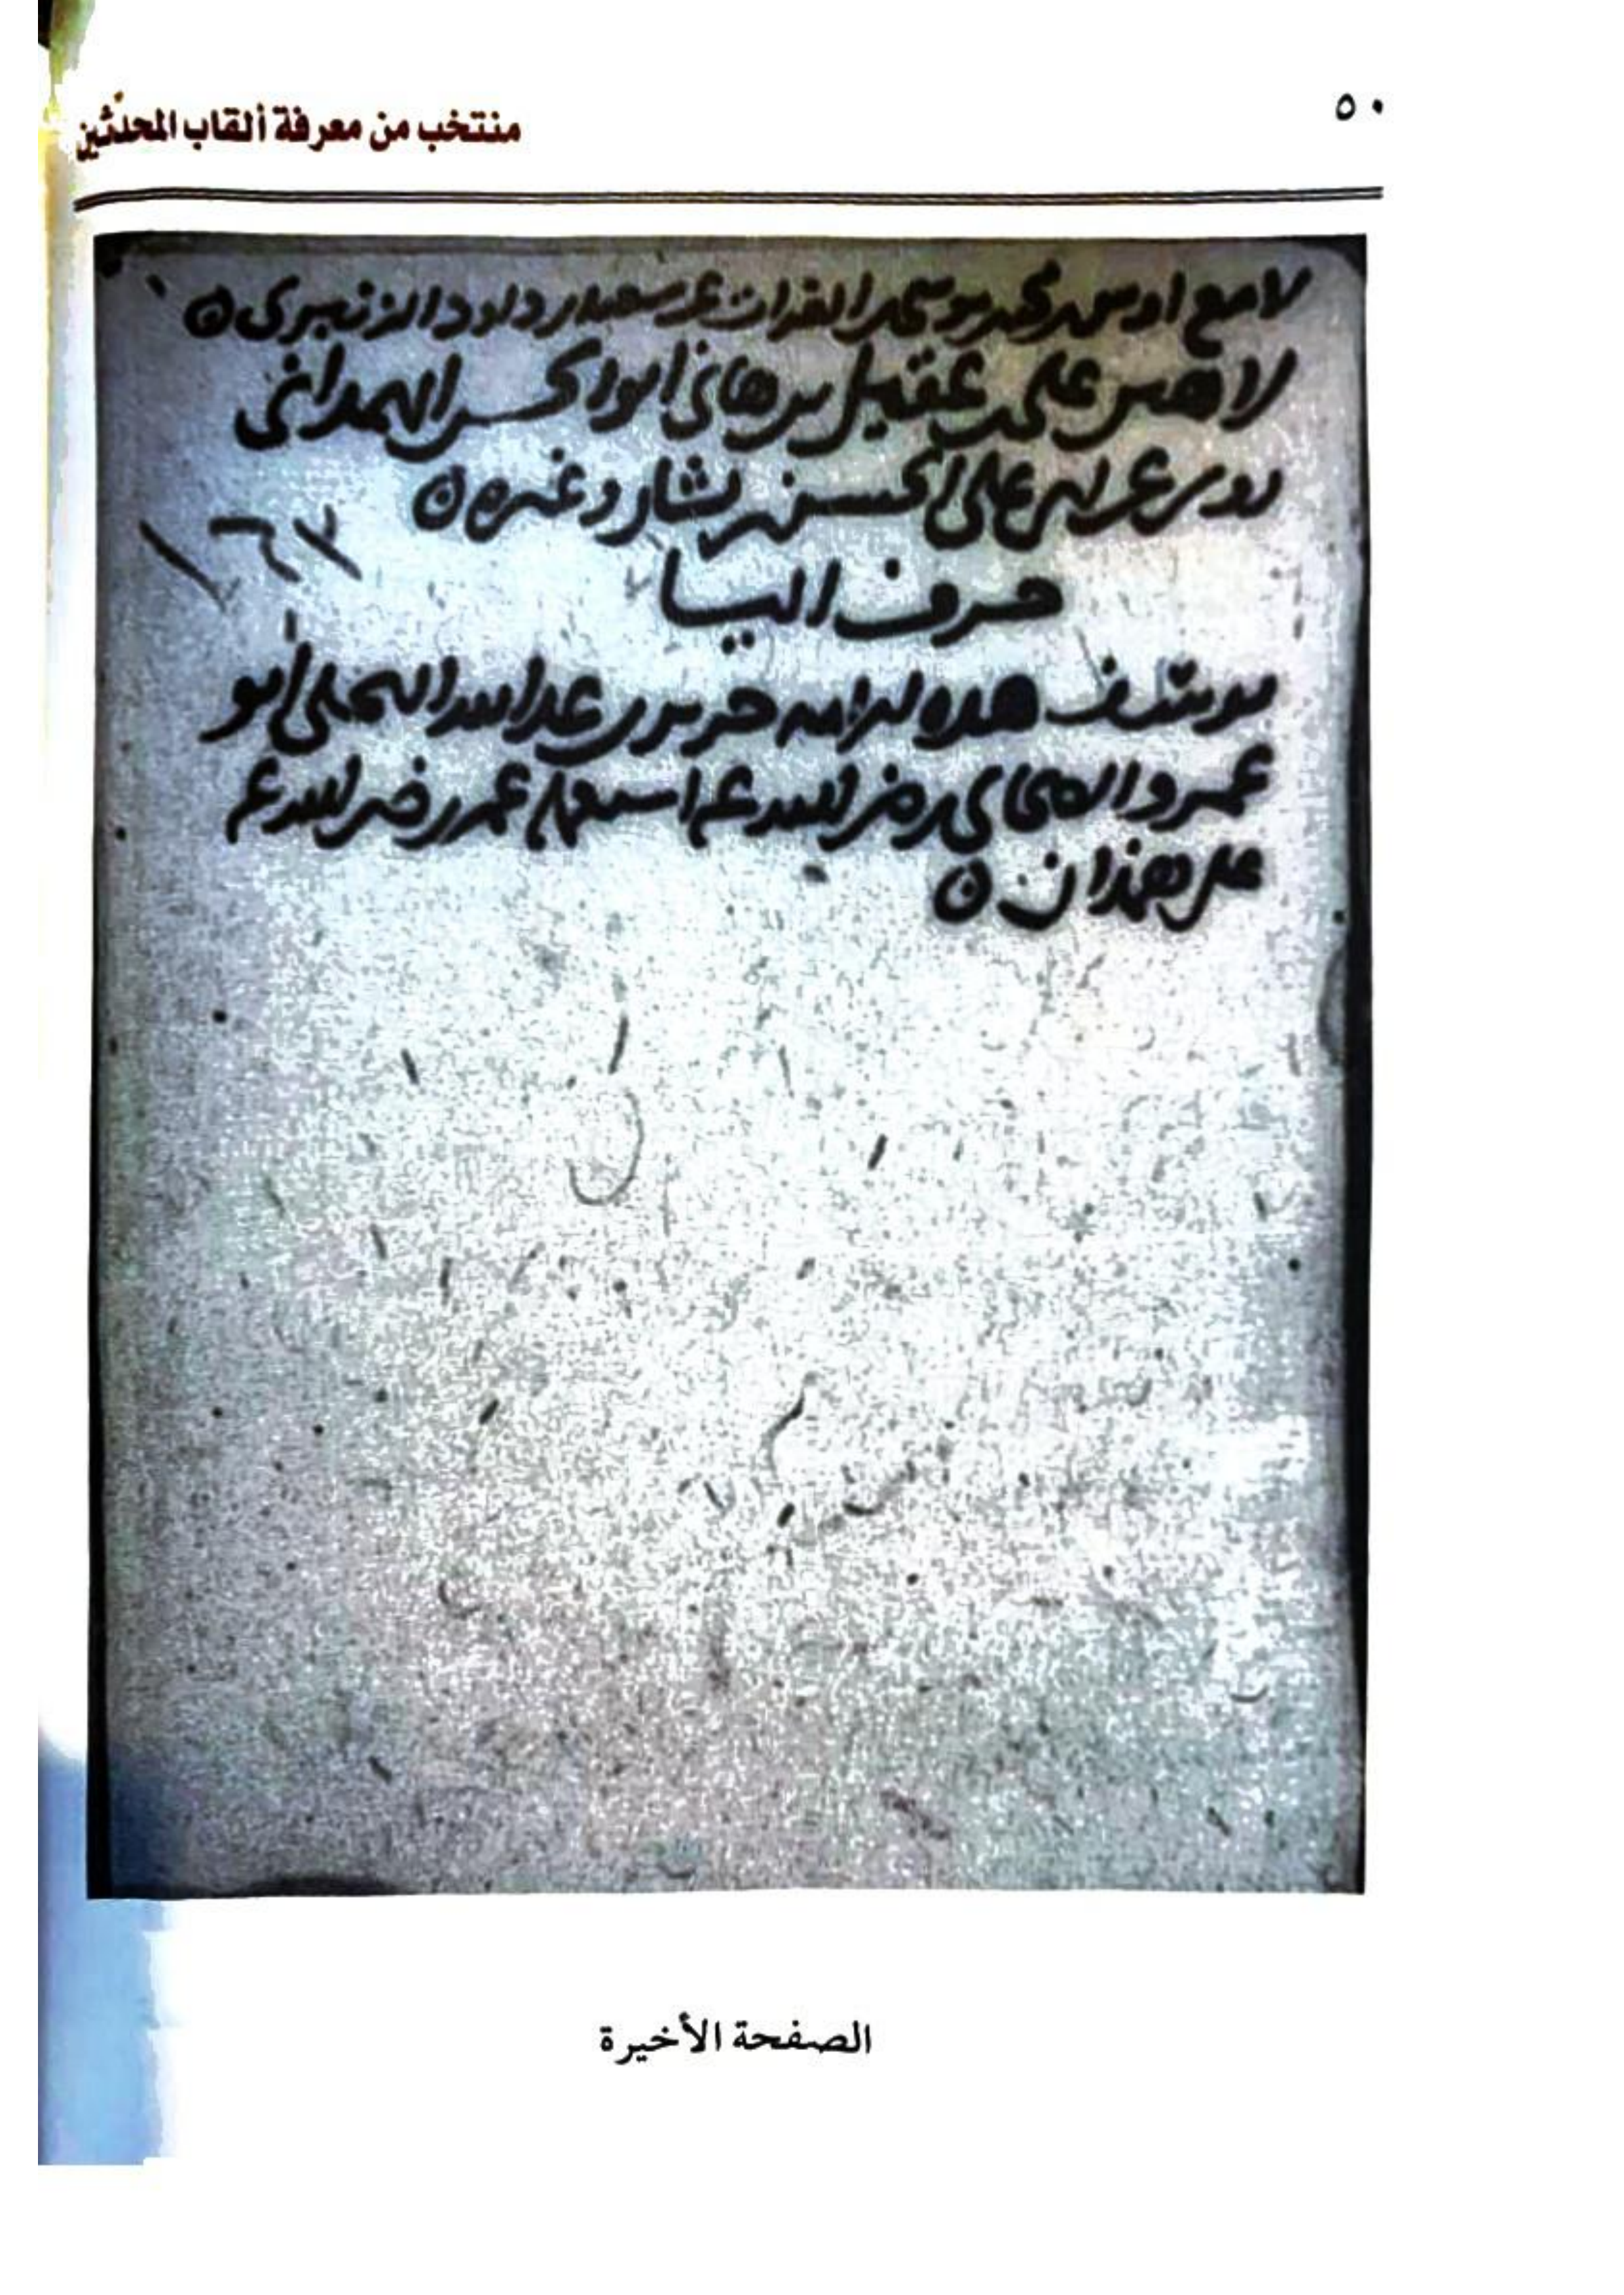 ٥٠
منتخب من معرفة ألقاب المحدّثين
لامع اوس محمد موسى الفرات عن سعيد بن داود الزنبري ه
لاهس على عقيل بن هانى ابو الحسن الهمدانى
روى عن على الحسن بن بشار وغيره ه
١٦٣
حرف اليا
يوسف هذه الامه جرير بن عبد الله البجلى ابو
عمرو الصحابي رضى الله عنه استعمله عمر رضى الله عنه
على همذان ه
الصفحة الأخيرة